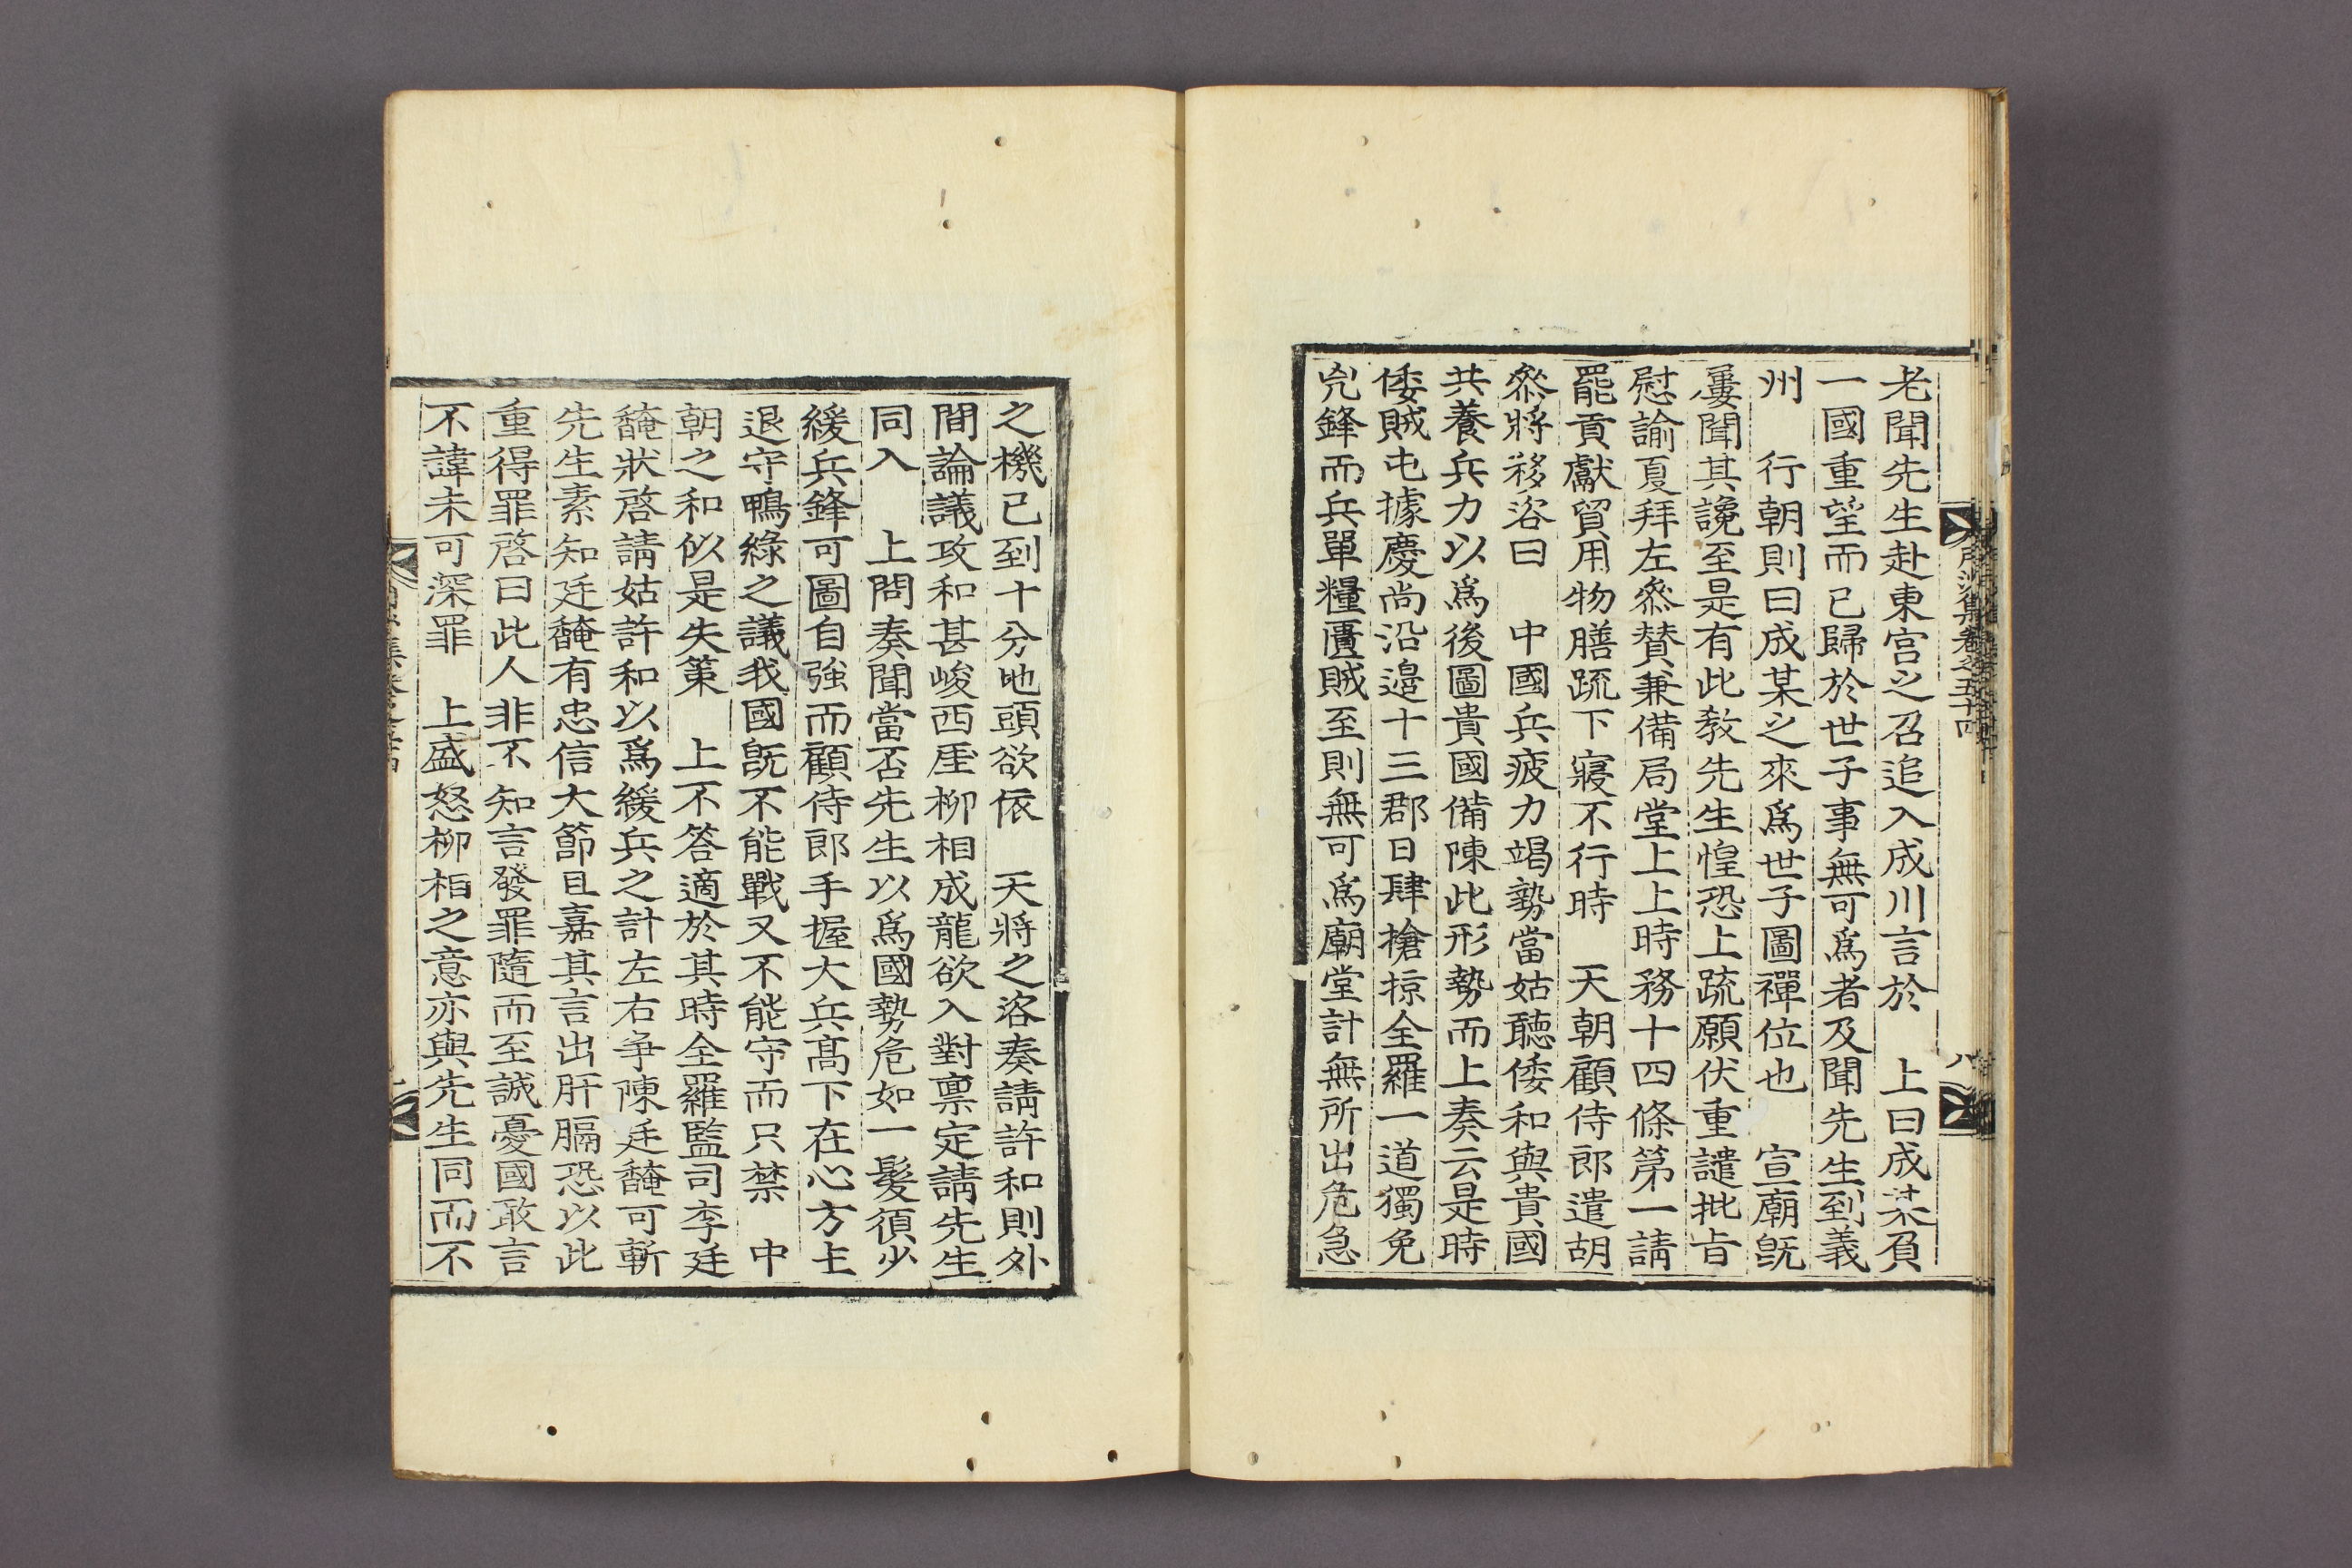 老聞先生赴東宮之召追入成川言於　上曰成某負
一國重望而已歸於世子事無可爲者及聞先生到義
州　行朝則曰成某之來爲世子圖禪位也　宣廟旣
屢聞其讒至是有此敎先生惶恐上疏願伏重譴批旨
慰諭夏拜左叅賛兼備局堂上上時務十四條第一請
罷貢獻貿用物膳疏下寢不行時　天朝顧侍郎遣胡
叅將移咨曰　中國兵疲力竭勢當姑聽倭和與貴國
共養兵力以爲後圖貴國備陳此形勢而上奏云是時
倭賊屯據慶尚沿邉十三郡日肆搶掠全羅一道獨免
兇鋒而兵單糧匱賊至則無可爲廟堂計無所出危急
之機已到十分地頭欲依　天將之咨奏請許和則外
間論議攻和甚峻西厓柳相成龍欲入對禀定請先生
同入　上問奏聞當否先生以爲國勢危如一髮須少
緩兵鋒可圖自強而顧侍郎手握大兵髙下在心方主
退守鴨綠之議我國旣不能戰又不能守而只禁　中
朝之和似是失策　上不答適於其時全羅監司李廷
馣狀啓請姑許和以爲緩兵之計左右爭陳廷馣可斬
先生素知廷馣有忠信大節且嘉其言出肝膈恐以此
重得罪啓曰此人非不知言發罪隨而至誠憂國敢言
不諱未可深罪　上盛怒柳相之意亦與先生同而不
集卷之五十四
八